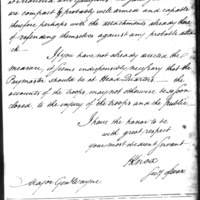 are compact & probably well armed and capable
therefore perhaps with the attachments already done
of defending themselves against any probable attack
If you have not already directed the
measure, it seems indispensably necessary that the
Paymaster should be at Head Quarters — the
accounts of the troops may not otherwise be soon
closed, to the injury of the troops and the public
I have the honor to be
with great respect
your most obedient Servant
HKnox
Secy of War
Major Genl Wayne